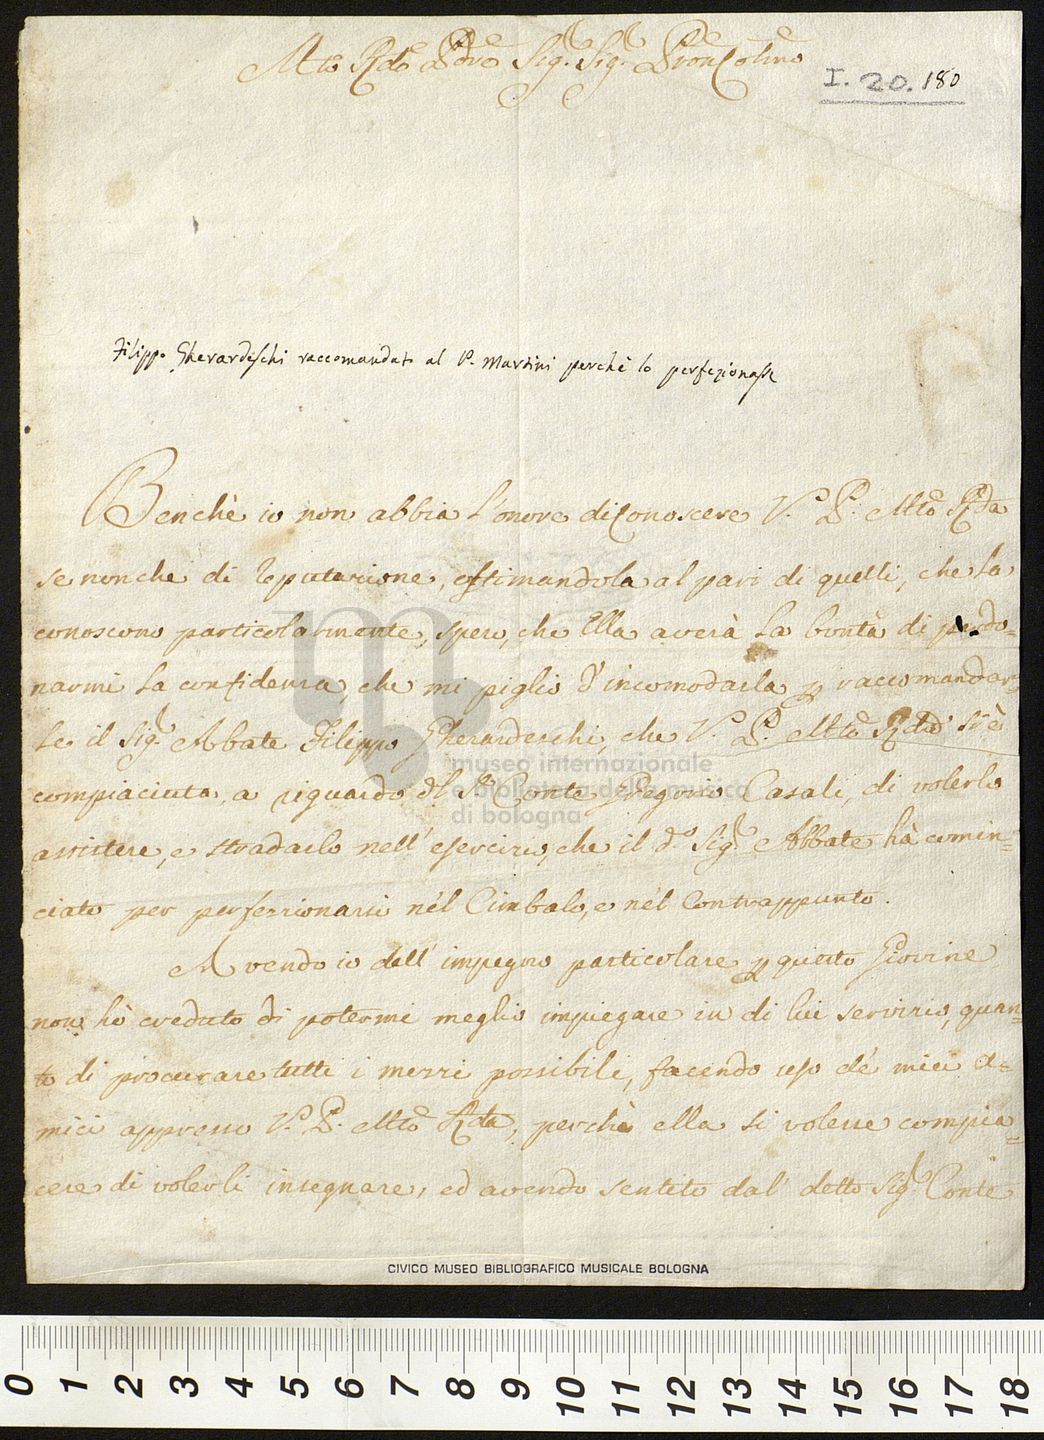 Mto Rdo Pdre Sig. Sig. Pron Colmo
I. 20. 180
Filippo Gherardeschi raccomandato al P. Martini perchè lo perfezionasse
Benchè io non abbia l'onore di conoscere V. P. Mto Rda
se non che di reputazione, estimandola al pari di quelli, che la
conoscono particolarmente, spero, che Ella averà la bontà di perdo=
narmi la confidenza, che mi piglio d'incomodarla p raccomandar=
le il Sig. Abbate Filippo Gherardeschi, che V. P. Mto Rda si è
compiaciuta, a riguardo dl Sr Conte Gregorio Casali, di volerlo
assistere, e stradarlo nell' esercizio, che il do Sig. Abbate hà comin=
ciato per perfezzionarsi nél Cimbalo, e nél Contrappunto.
Avendo io dell' impegno particolare p questo Giovine
non hò creduto di potermi meglio impiegare in di lui servizio, quan=
to di procurare tutti i mezzi possibili, facendo uso de' miei a=
mici appresso V. P. Mto Rda, perchè ella si volesse compia=
cere di volerli insegnare, ed avendo sentito dal' detto Sig. Conte
museo internazionale
e biblioteca della musica
di bologna
CIVICO MUSEO BIBLIOGRAFICO MUSICALE BOLOGNA
0 1 2 3 4 5 6 7 8 9 10 11 12 13 14 15 16 17 18